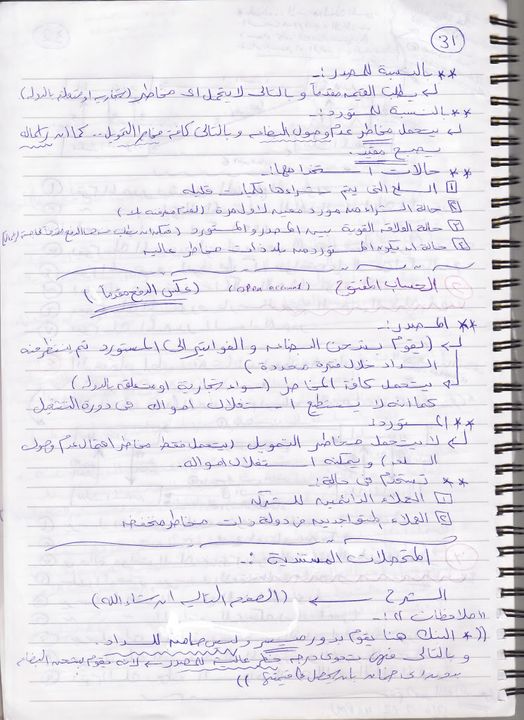 31
** بالنسبة للمصدر :-
يطلب القيمة مقدماً وبالتالى لا يتحمل اى مخاطر (تجارية او متعلقة بالدولة)
** بالنسبة للمستورد :-
يتحمل مخاطر عدم وصول البضاعه وبالتالى كافة مخاطر التمويل .. كما ان رأسماله
يصبح مقيد.
** حالات استخدامها :-
1 السلع التى يتم شراءها بكميات قليله
2 حالة الشراء من مورد معين لأول مرة
3 حالة العلاقه القوية بين المصدر والمستورد
4 حالة ان يكون المستورد من بلد ذات مخاطر عاليه
2 الحساب المفتوح (open account) (عكس الدفع مقدماً)
** المصدر :-
(يقوم بشحن البضاعه و الفواتير الى المستورد ثم منتظر منه
السداد خلال فترة محددة)
يتحمل كافة المخاطر (سواء تجارية او متعلقه بالدولة)
كما انه لا يستطيع استغلال امواله فى دورة التشغيل
** المستورد :-
لا يتحمل مخاطر التمويل (يتحمل فقط مخاطر احتمال عدم وصول
السلعه) ويمكنه استغلال امواله.
** تستخدم فى حالة :-
1 العملاء الدائمين للشركه
2 العملاء المتواجدين من دولة ذات مخاطر منخفضه
3 المتحصلات المستندية :-
الشرح ← (الصفحه التاليه ان شاء الله)
ملاحظات :-
(( * البنك هنا يقوم بدور وليس ضامنه للسداد.
و بالتالى فهى تحوى درجه عالية للمصدر لانه يقوم بشحن البضاعه
بدون اى ضمان بأنه يحصل قيمتها ))